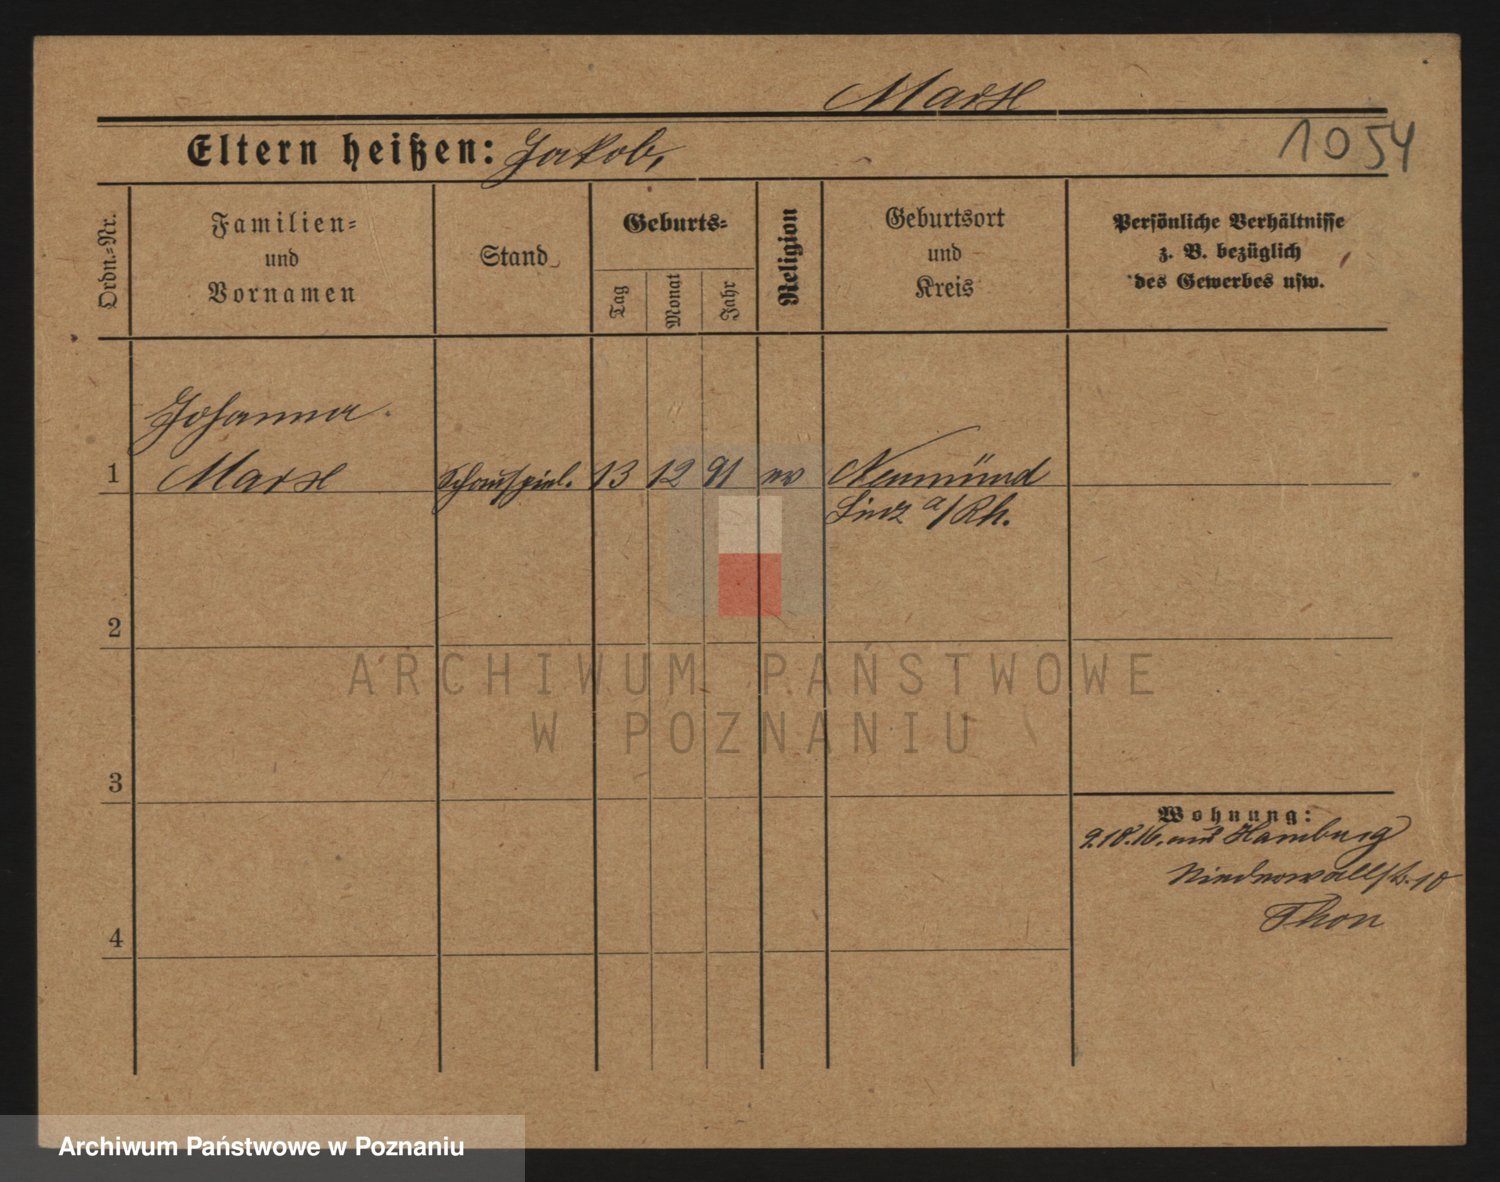 Marx
Eltern heißen: Jakob,
1054
Ordn.-Nr.
Familien-
und
Vornamen
Stand
Geburts-
Tag
Monat
Jahr
Religion
Geburtsort
und
Kreis
Persönliche Verhältnisse
z. B. bezüglich
des Gewerbes usw.
Johanna
1 Marx Schauspiel. 13 12 91 ev Neumünd
Linz a/Rh.
2
ARCHIWUM PAŃSTWOWE
W POZNANIU
3
Wohnung:
9.10.16. aus Hamburg
Niederwallstr. 10
Thon
4
Archiwum Państwowe w Poznaniu